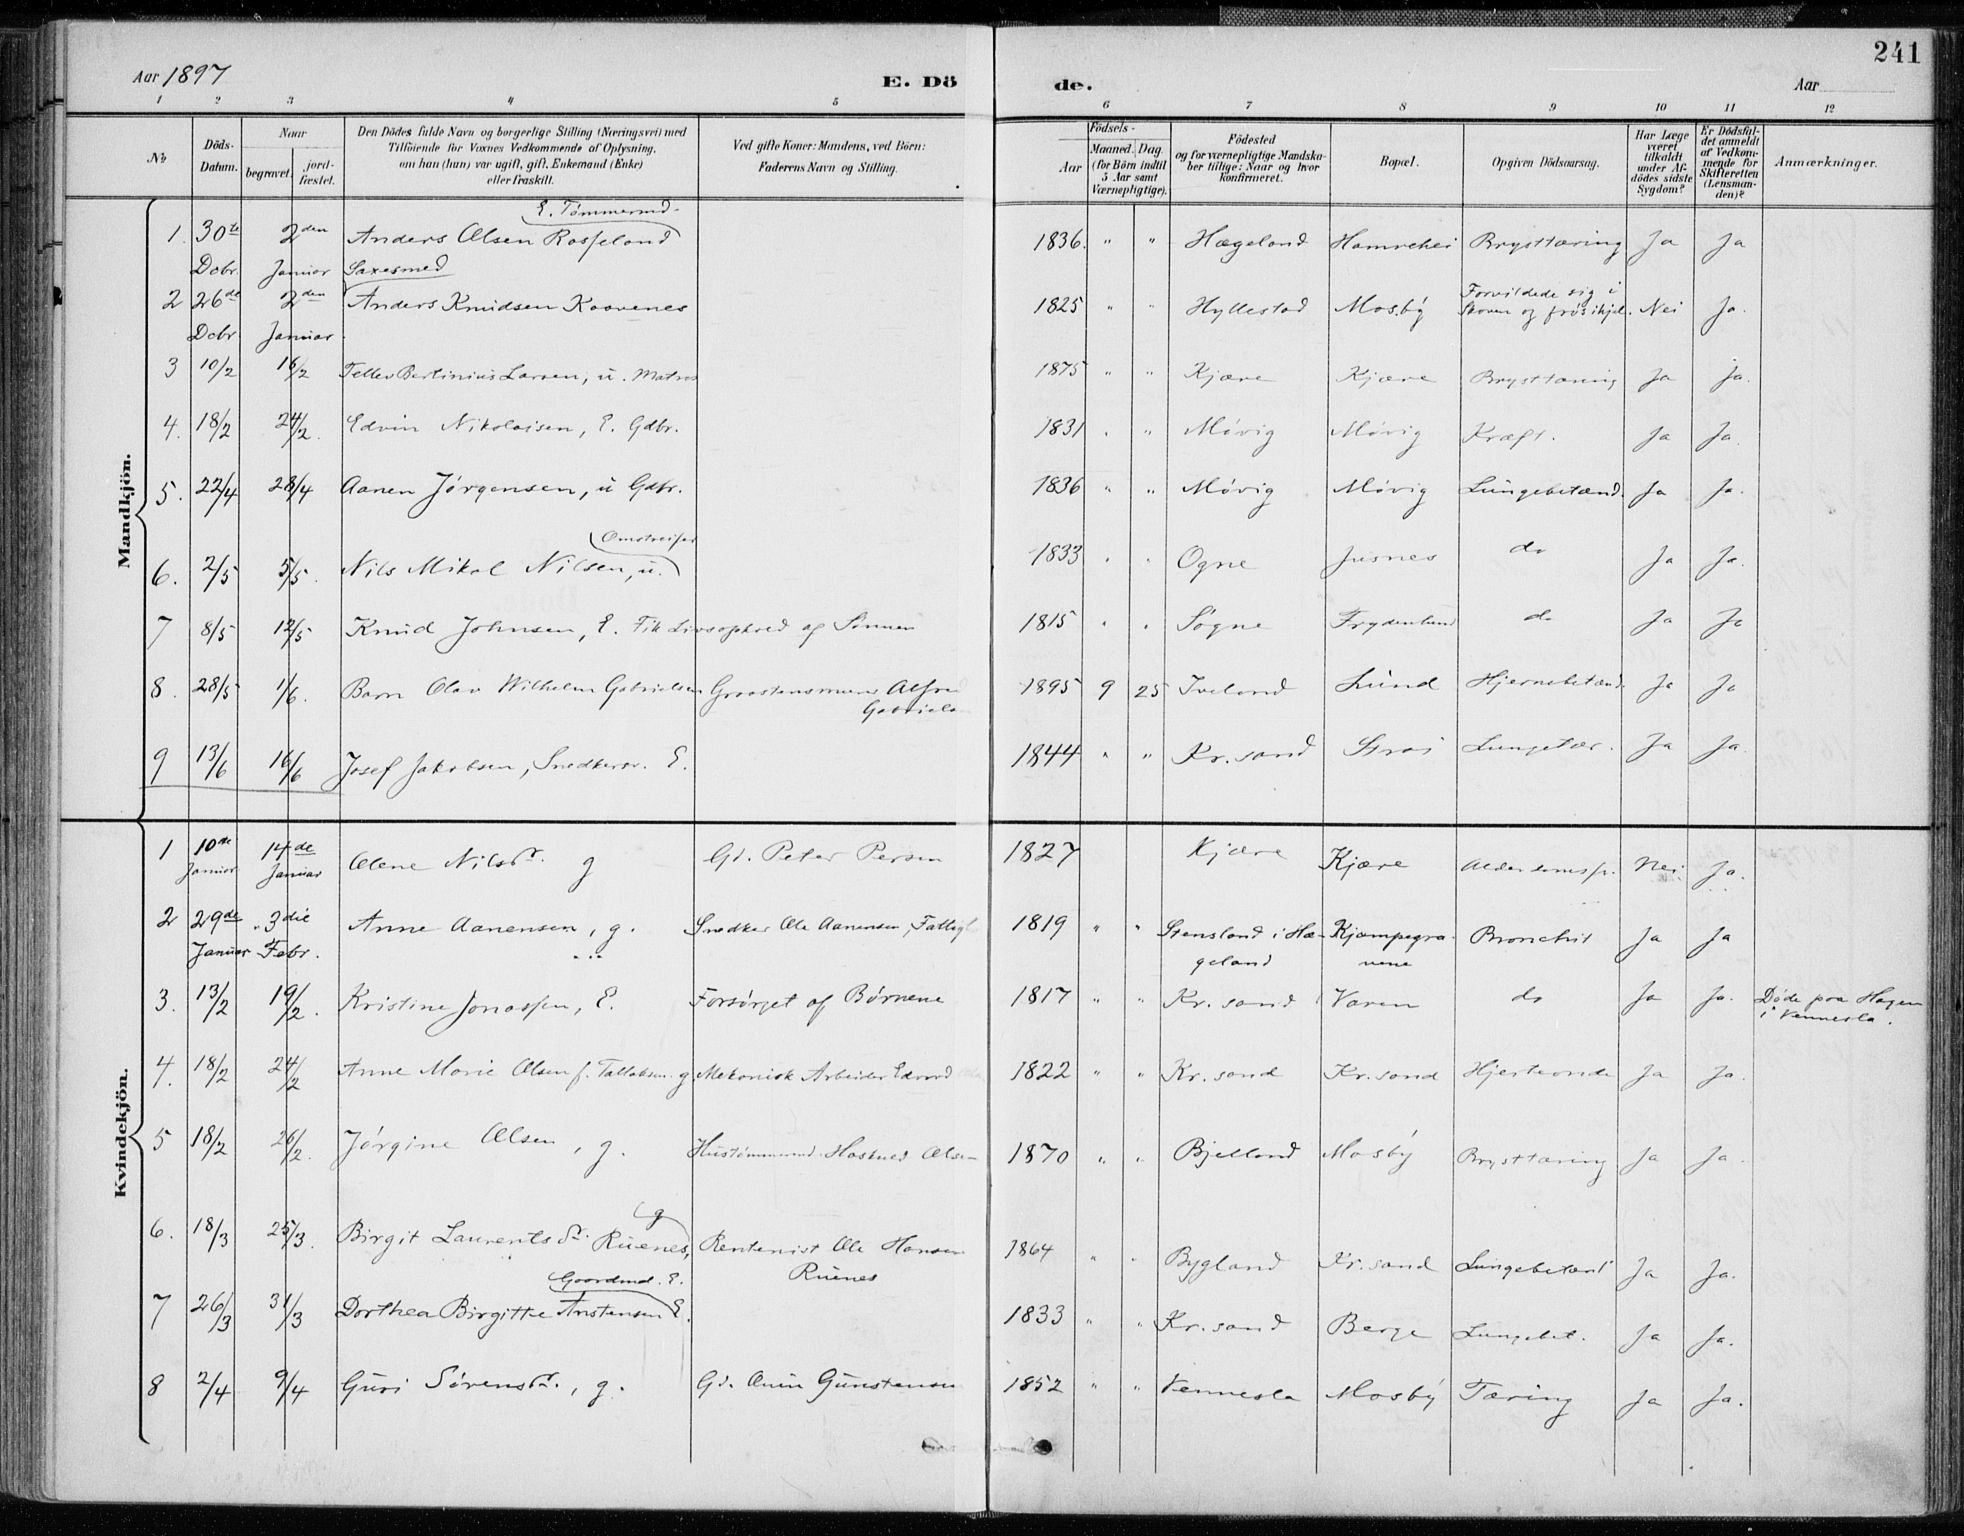 241
Aar 1897 E. Dö de. Aar
1 2 3 4 5 6 7 8 9 10 11 12
No
Döds-Datum.
Naar
begravet. jord-fæstet.
Den Dödes fulde Navn og borgerlige Stilling (Næringsvei) med
Tilföiende for Voxnes Vedkommende af Oplysning,
om han (hun) var ugift, gift, Enkemand (Enke)
eller fraskilt.
Ved gifte Koner: Mandens, ved Börn:
Faderens Navn og Stilling.
Födsels-
Aar Maaned. Dag.
(for Börn indtil
5 Aar samt
Værnepligtige).
Födested
og for værnepligtige Mandska-
ber tillige: Naar og hvor
konfirmeret.
Bopæl.
Opgiven Dödsaarsag.
Har Læge
været
tilkaldt
under Af-
dödes sidste
Sygdom?
Er Dödsfal-
det anmeldt
af Vedkom-
mende for
Skifteretten
(Lensman-
den)?
Anmærkninger.
Mandkjön.
E. Tømmermd.
1. 30te Dcbr. 2den Januar Anders Olsen Rosseland 1836. " " Hægeland Hamrehei Brysttæring Ja Ja
Saxesmed
2 26de Dcbr 2den Januar. Anders Knudsen Kaavenes 1825 " " Hyllestad Mosby Forvildede sig i Skoven og frøs ihjel. Nei Ja.
3 10/2 16/2 Tellev Bertinius Larsen, u. Matros 1875 " " Kjære Kjære Brysttæring Ja Ja.
4. 18/2 24/2. Edvin Nikolaisen, E. Gdbr. 1831 " " Møvig Møvig Kræft. Ja Ja.
5. 22/4 28/4 Aanen Jørgensen, u Gdbr. 1836 " " Møvig Møvig Lungebetænd. Ja Ja.
Omstreifer
6. 2/5 5/5. Nils Mikal Nilsen, u. 1833 " " Ogne Jusnes do Ja Ja.
7 8/5 12/5 Knud Johnsen, E. Fik Livsophold af Sønnen 1815 " " Søgne Frydenlund do Ja Ja
8. 28/5 1/6. Barn Olav Wilhelm Gabrielsen Graastensmurer Alfred Gabrielsen 1895 9 25 Iveland Lund Hjernebetænd. Ja Ja
9 13/6 16/6 Josef Jakobsen, Snedkersv. E. 1844 " " Kr.sand Strai Lungetær. Ja Ja.
Kvindekjön.
1 10de Januar 14de Januar Olene Nilsdr. g Gd. Peter Persen 1827 Kjære Kjære Alderdomssv. Nei Ja.
2 29de Januar 3die Febr. Anne Aanensen, g. Snedker Ole Aanensen, Fattigl 1819 " " Stensland i Hæ-geland Kjæmpegra-vene Bronchit Ja Ja
3. 13/2 19/2. Kristine Jonassen, E. Forsørget af Børnene 1817 " " Kr.sand Varen do Ja Ja. Døde paa Hagen i Vennesla.
4. 18/2 24/2 Anne Marie Olsen f. Tallaksen. g Mekanisk Arbeider Edvard 1822 " " Kr.sand Kr.sand Hjerteonde Ja Ja.
5 18/2 26/2. Jørgine Olsen, g. Hustømmermd. Olsen 1870 " " Bjelland Mosby Brysttæring Ja Ja.
g
6. 18/3 25/3. Birgit Laurentsdr. Ruenes, Rentenist Ole Hansen Ruenes 1864 " " Bygland Kr.sand Lungebetænd Ja Ja.
Gaardmd. E.
7 26/3 31/3 Dorthea Birgitte Anstensen E. 1833 " " Kr.sand Berge Lungebet. Ja Ja.
8 2/4 9/4 Guri Sørensdr., g. Gd. Gunstensen 1852 " " Vennesla Mosby Tæring Ja Ja.